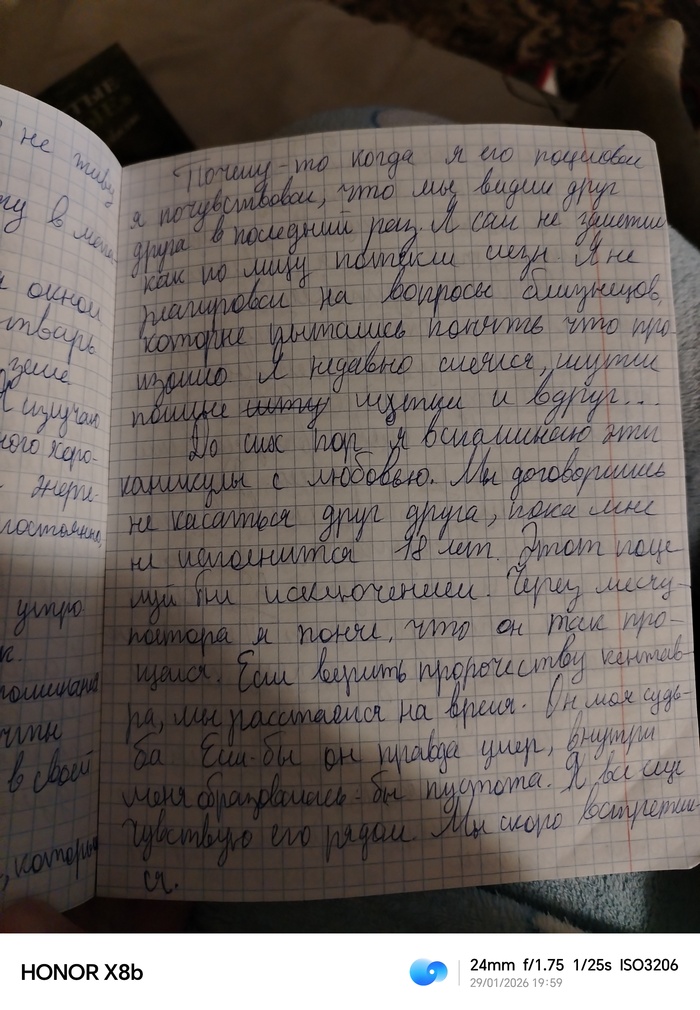 не живу
ту в мен
окной
тварь
земле
изучаю
ного хоро-
энерг-
постоянно,
утро
к.
поминания
чтн
в своей
, которые
Почему-то когда я его поцеловал
я почувствовал, что мы видим друг
друга в последний раз. Я сам не заметил
как по лицу потекли слезы. Я не
реагировал на вопросы близнецов,
которые пытались понять что про-
изошло. Я недавно смеялся, шутил
пошлые шутки и вдруг...
До сих пор я вспоминаю эти
каникулы с любовью. Мы договорились
не касаться друг друга, пока мне
не исполнится 18 лет. Этот поце
луй был исключением. Через месяц-
полтора я понял, что он так про-
щался. Если верить пророчеству кентав-
ра, мы расстаемся на время. Он моя судь-
ба. Если-бы он правда умер, внутри
меня образовалась-бы пустота. Я все еще
чувствую его рядом. Мы скоро встретим-
ся.
HONOR X8b
24mm f/1.75 1/25s ISO3206
29/01/2026 19:59